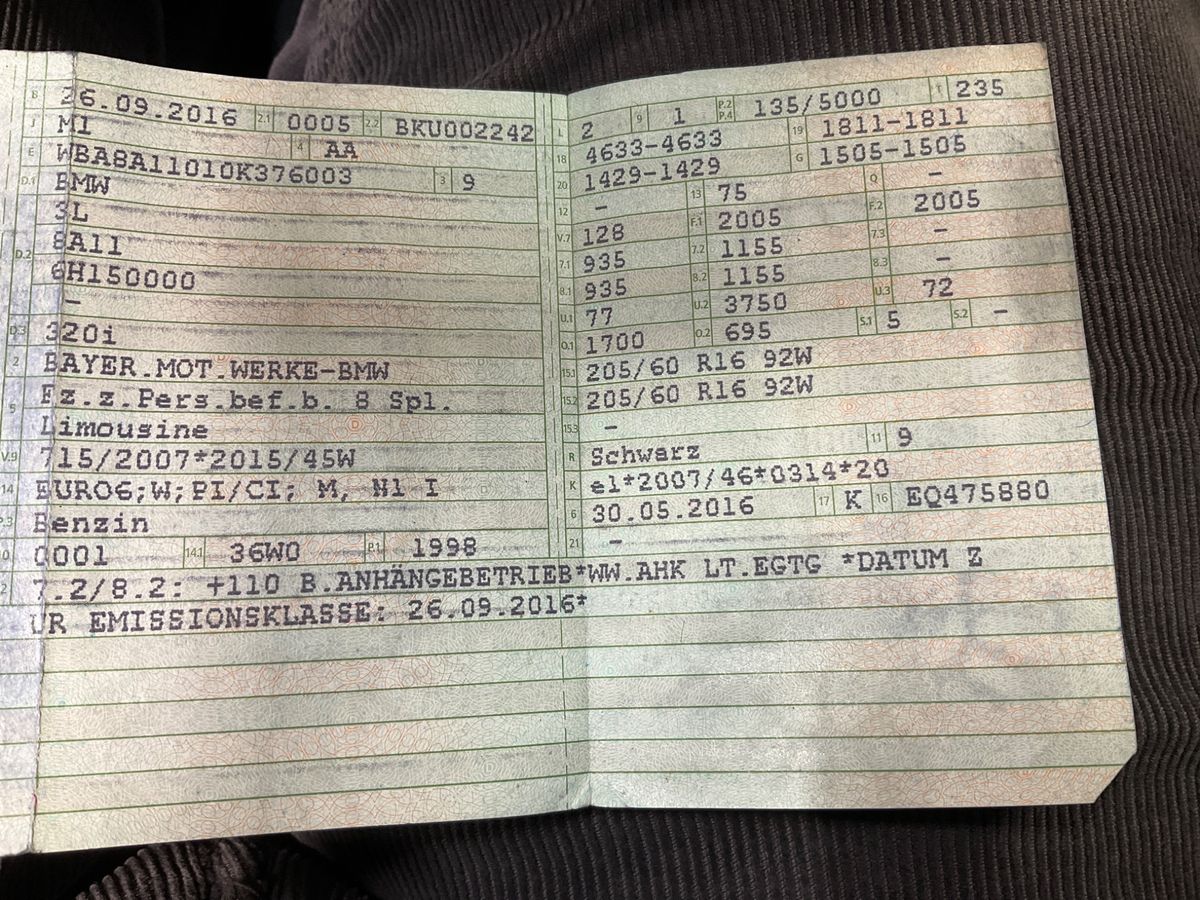 B 26.09.2016 2.1 0005 2.2 BKU002242
J M1 4 AA
E WBA8A11010K376003 3 9
D.1 BMW
3L
D.2 8A11
6H150000
–
D.3 320i
2 BAYER.MOT.WERKE-BMW
5 Fz.z.Pers.bef.b. 8 Spl.
Limousine
V.9 715/2007*2015/45W
14 EURO6;W;PI/CI; M, N1 I
P.3 Benzin
10 0001 14.1 36W0 P.1 1998
L 2 9 1 P.2 P.4 135/5000 T 235
18 4633-4633 19 1811-1811
20 1429-1429 G 1505-1505
12 – 13 75 Q –
V.7 128 F.1 2005 F.2 2005
7.1 935 7.2 1155 7.3 –
8.1 935 8.2 1155 8.3 –
U.1 77 U.2 3750 U.3 72
O.1 1700 O.2 695 S.1 5 S.2 –
15.1 205/60 R16 92W
15.2 205/60 R16 92W
15.3 –
R Schwarz 11 9
K e1*2007/46*0314*20
6 30.05.2016 17 K 16 EQ475880
21 –
22 7.2/8.2: +110 B.ANHÄNGEBETRIEB*WW.AHK LT.EGTG *DATUM Z
UR EMISSIONSKLASSE: 26.09.2016*